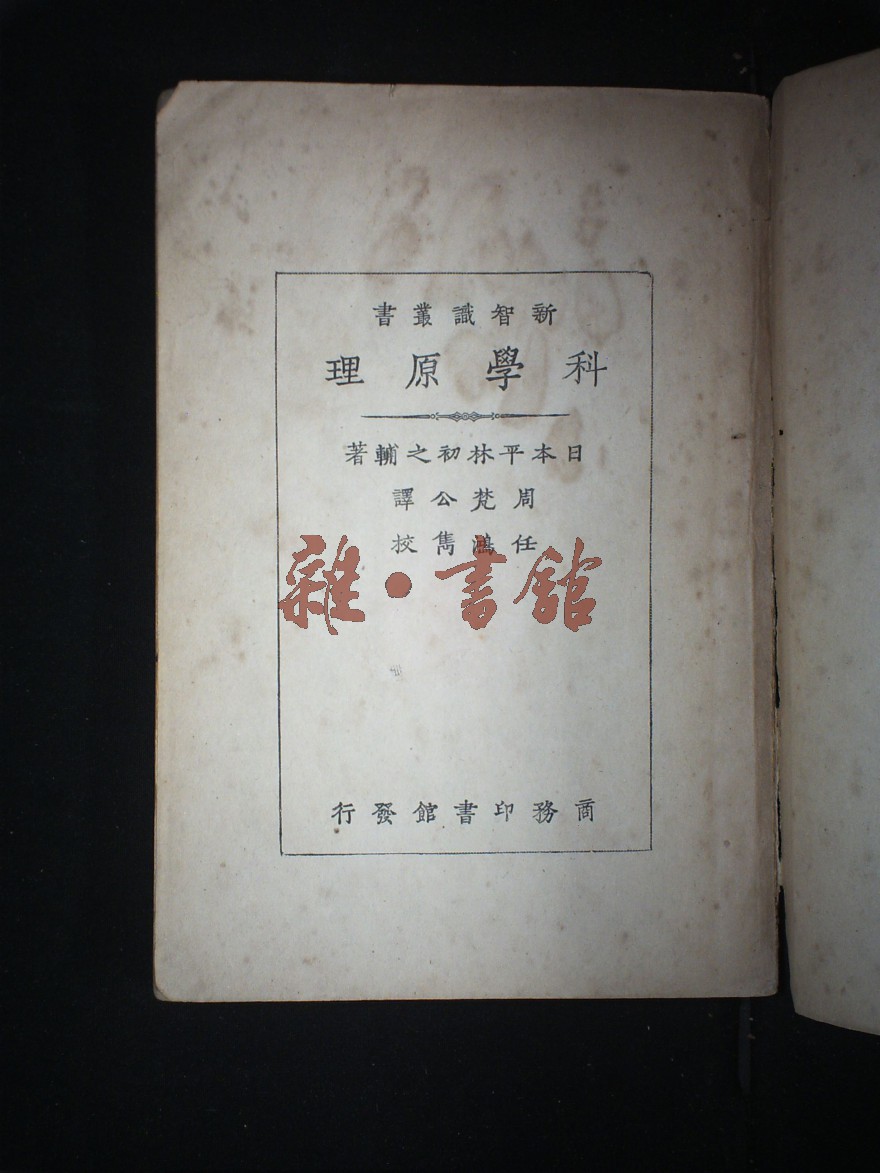 新智識叢書
科學原理
日本平林初之輔著
周梵公譯
任鴻雋校
雜·書館
商務印書館發行